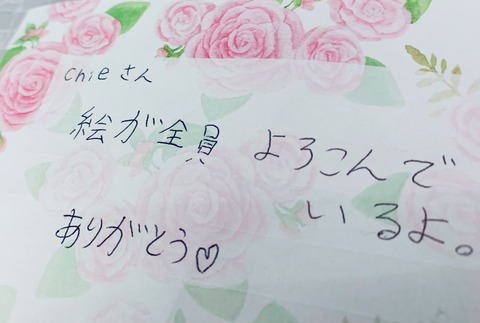 chieさん
絵が全員 よろこんで
いるよ。
ありがとう♡